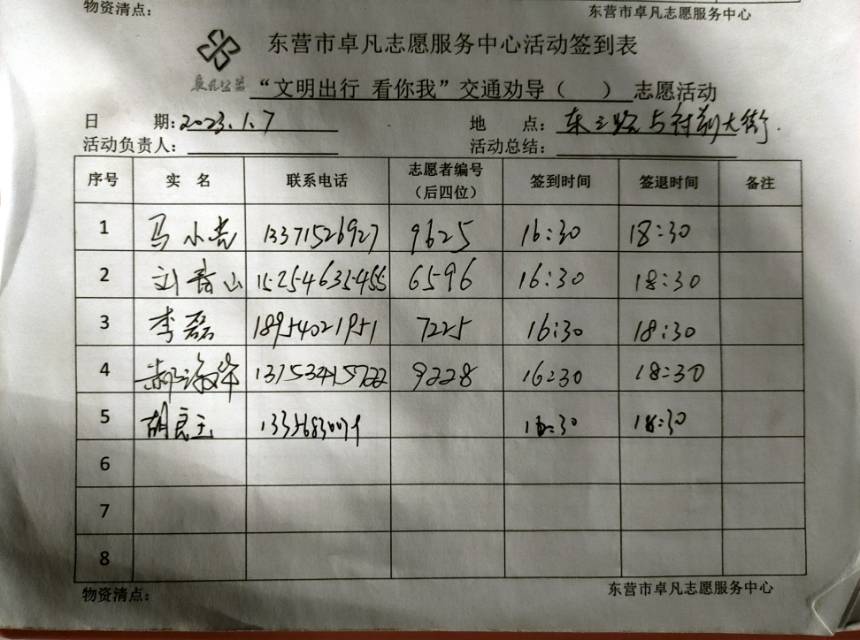 物资清点： 东营市卓凡志愿服务中心
东营市卓凡志愿服务中心活动签到表
卓凡公益 “文明出行 看你我”交通劝导（ ） 志愿活动
日 期：2023.1.7 地 点：东三路与府前大街.
活动负责人： 活动总结：
序号 实 名 联系电话 志愿者编号（后四位） 签到时间 签退时间 备注
1 马小 13371526927 9625 16:30 18:30
2 刘 山 15254635455 6596 16:30 18:30
3 李磊 18954021951 7225 16:30 18:30
4 郝海峰 9228 16:30 18:30
5 胡良玉 16:30 18:30
6
7
8
物资清点： 东营市卓凡志愿服务中心